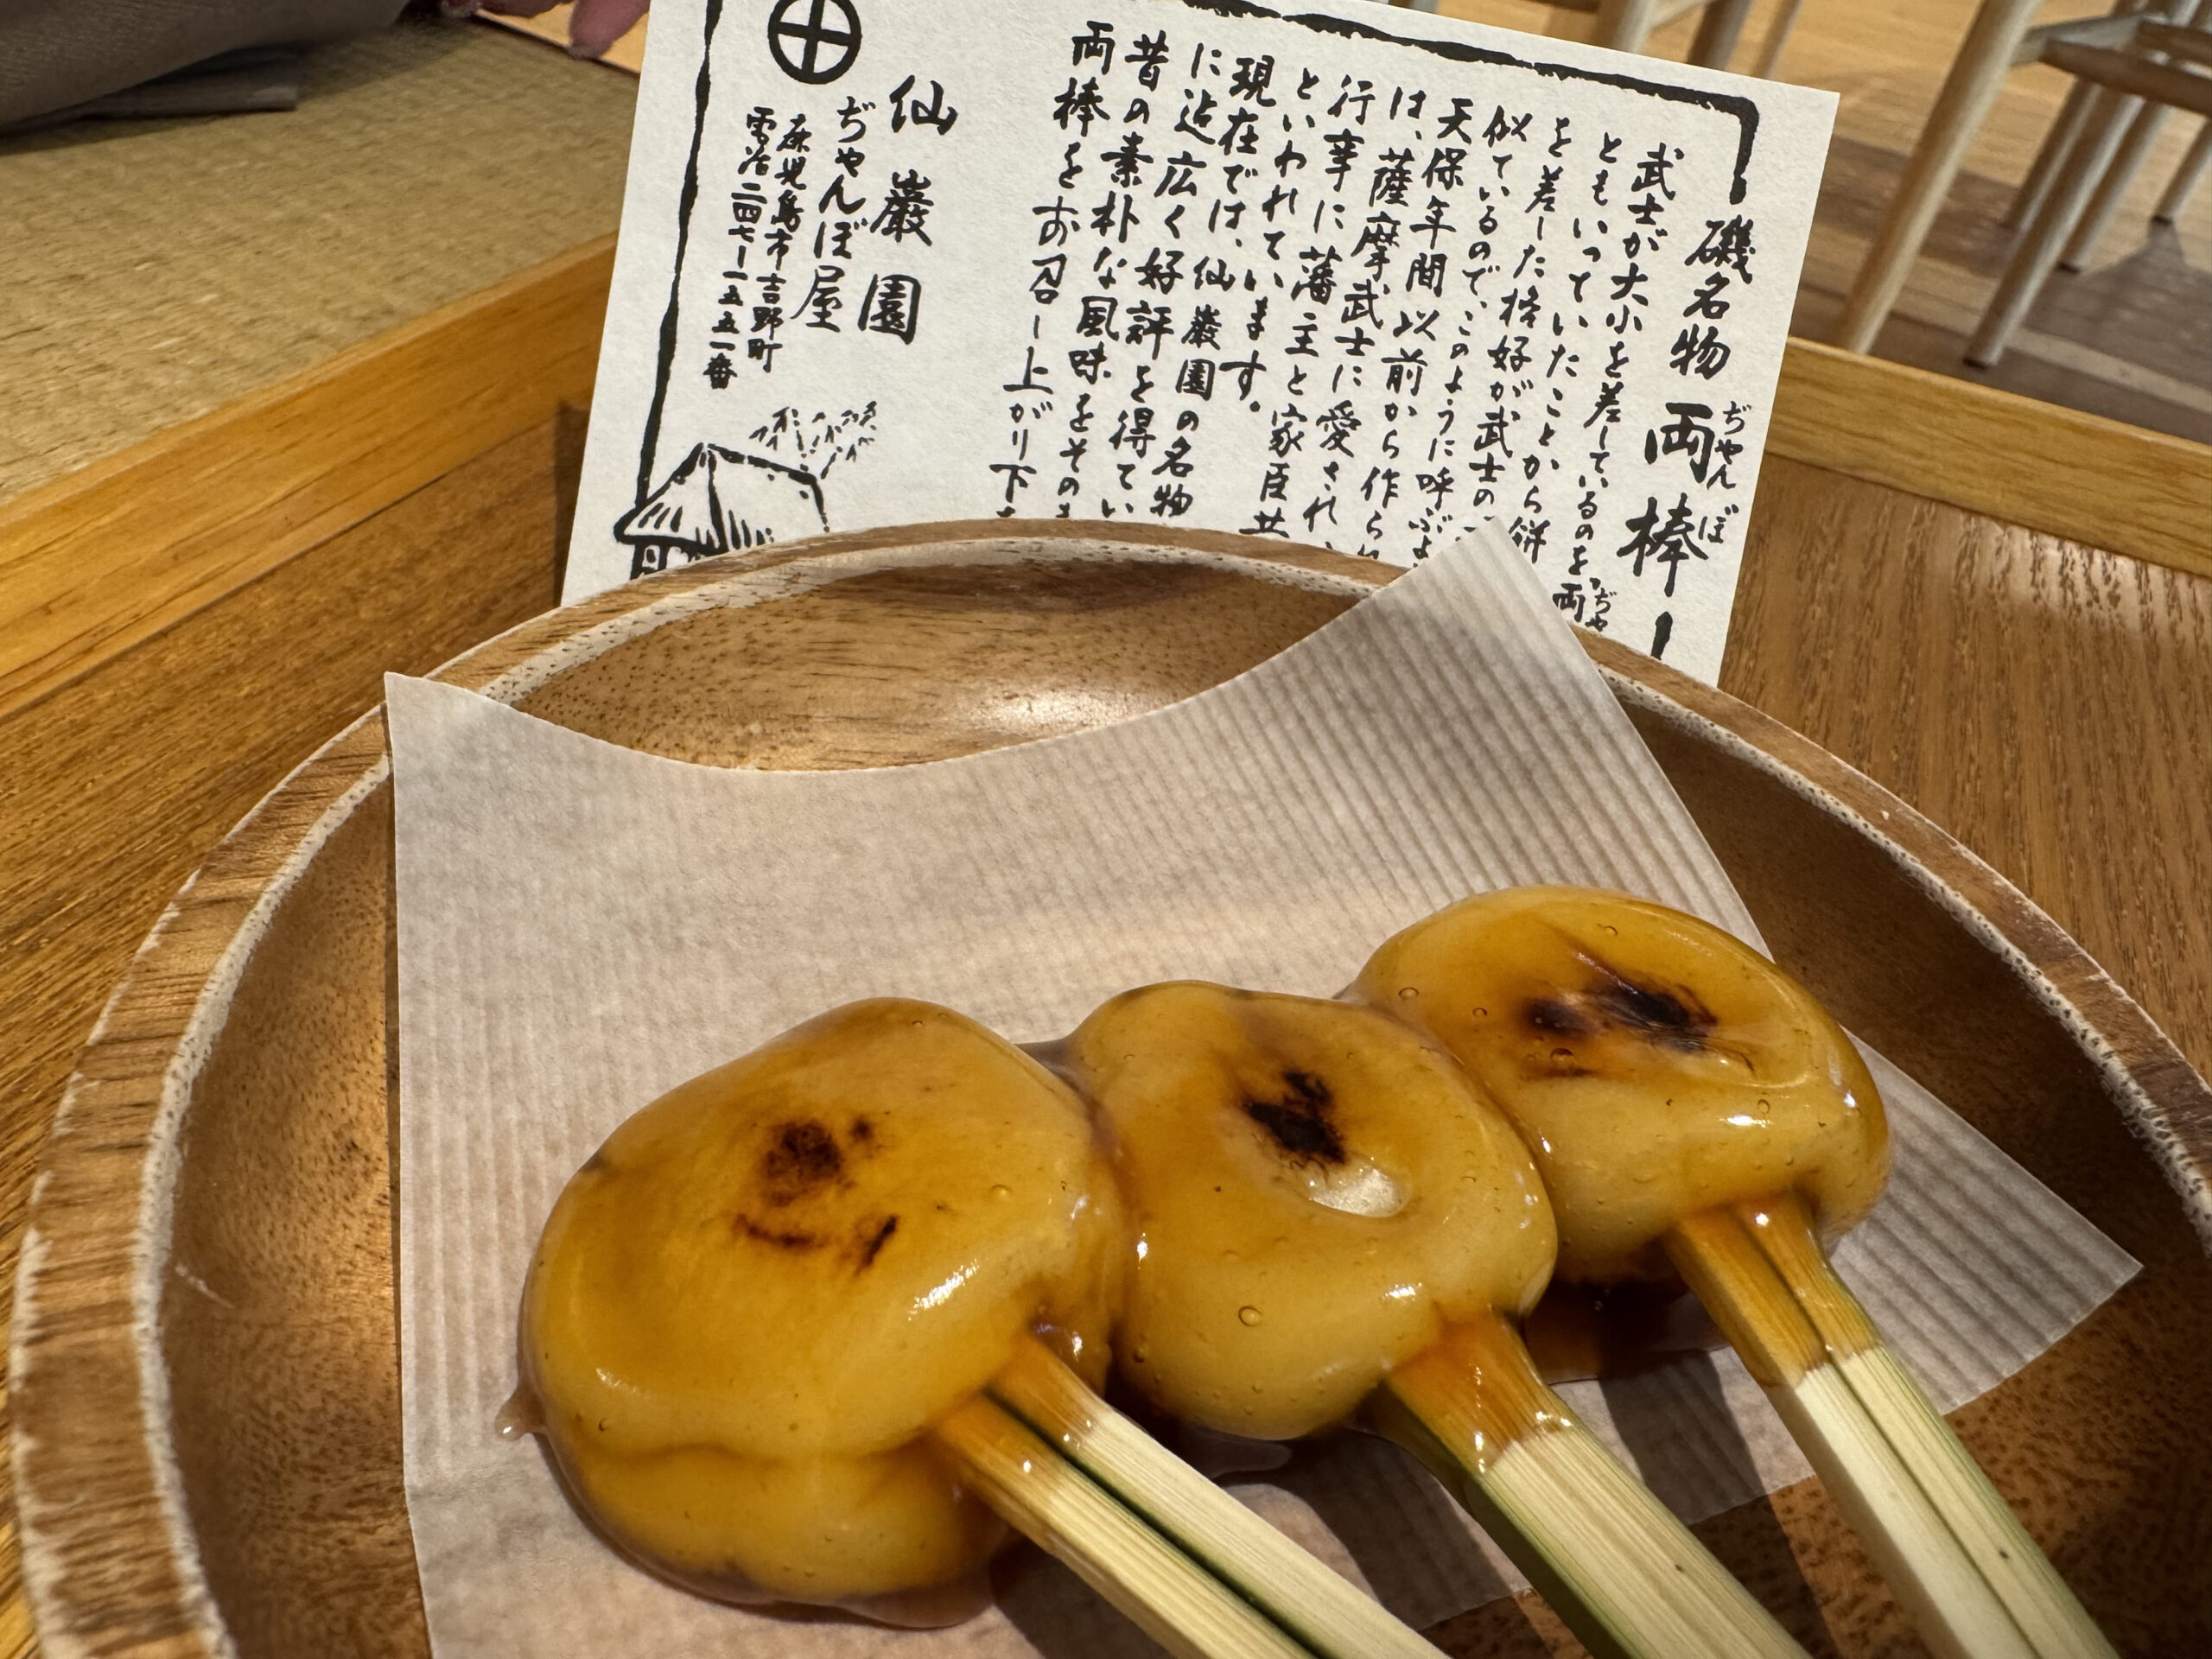 磯名物 両棒
ぢゃんぼ
武士が大小を差しているのを両
ぢゃ
ともいっていたことから餅
を差した格好が武士の
似ているので、このように呼ぶよ
天保年間以前から作ら
は、薩摩武士に愛され、
行幸に藩主と家臣共
といわれています。
現在では、仙巌園の名物
に迄広く好評を得てい
昔の素朴な風味をその
両棒をお召し上がり下
仙巌園
ぢゃんぼ屋
鹿児島市吉野町
雷冶二四七一一五五一番